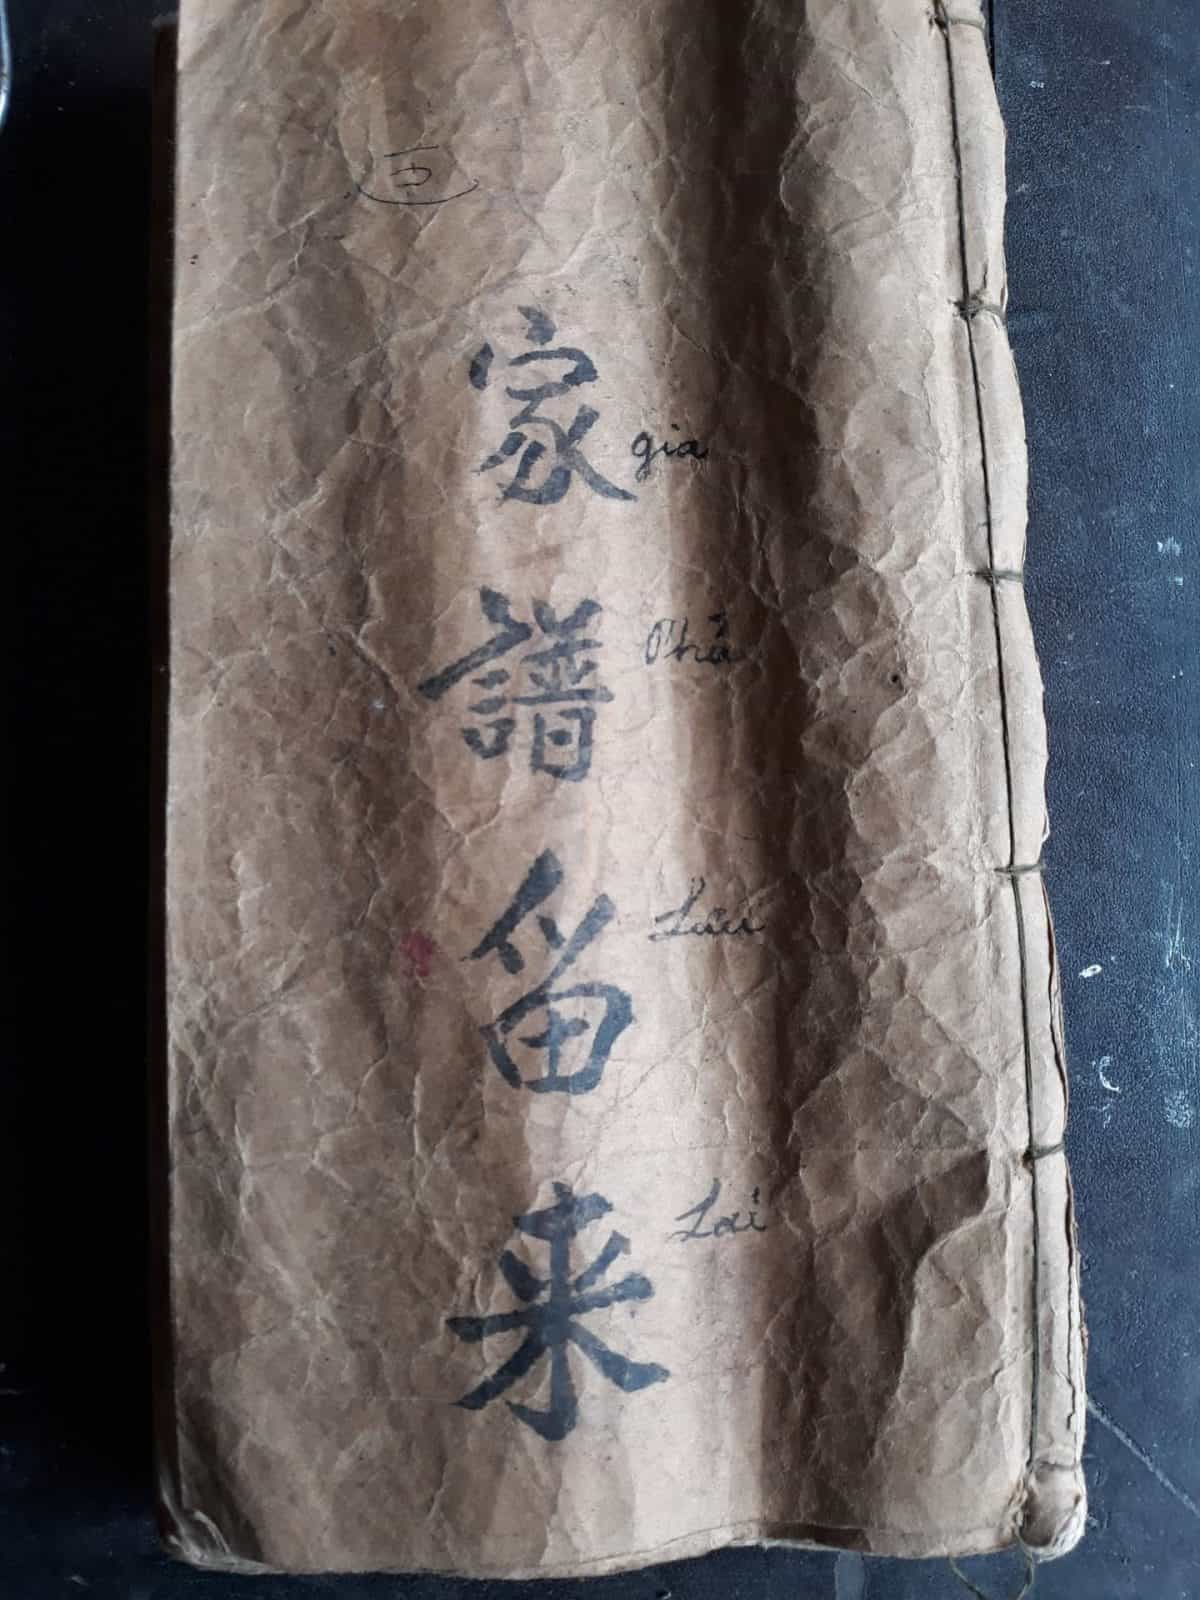 家 gia
譜 Phả
留 Lưu
来 Lai